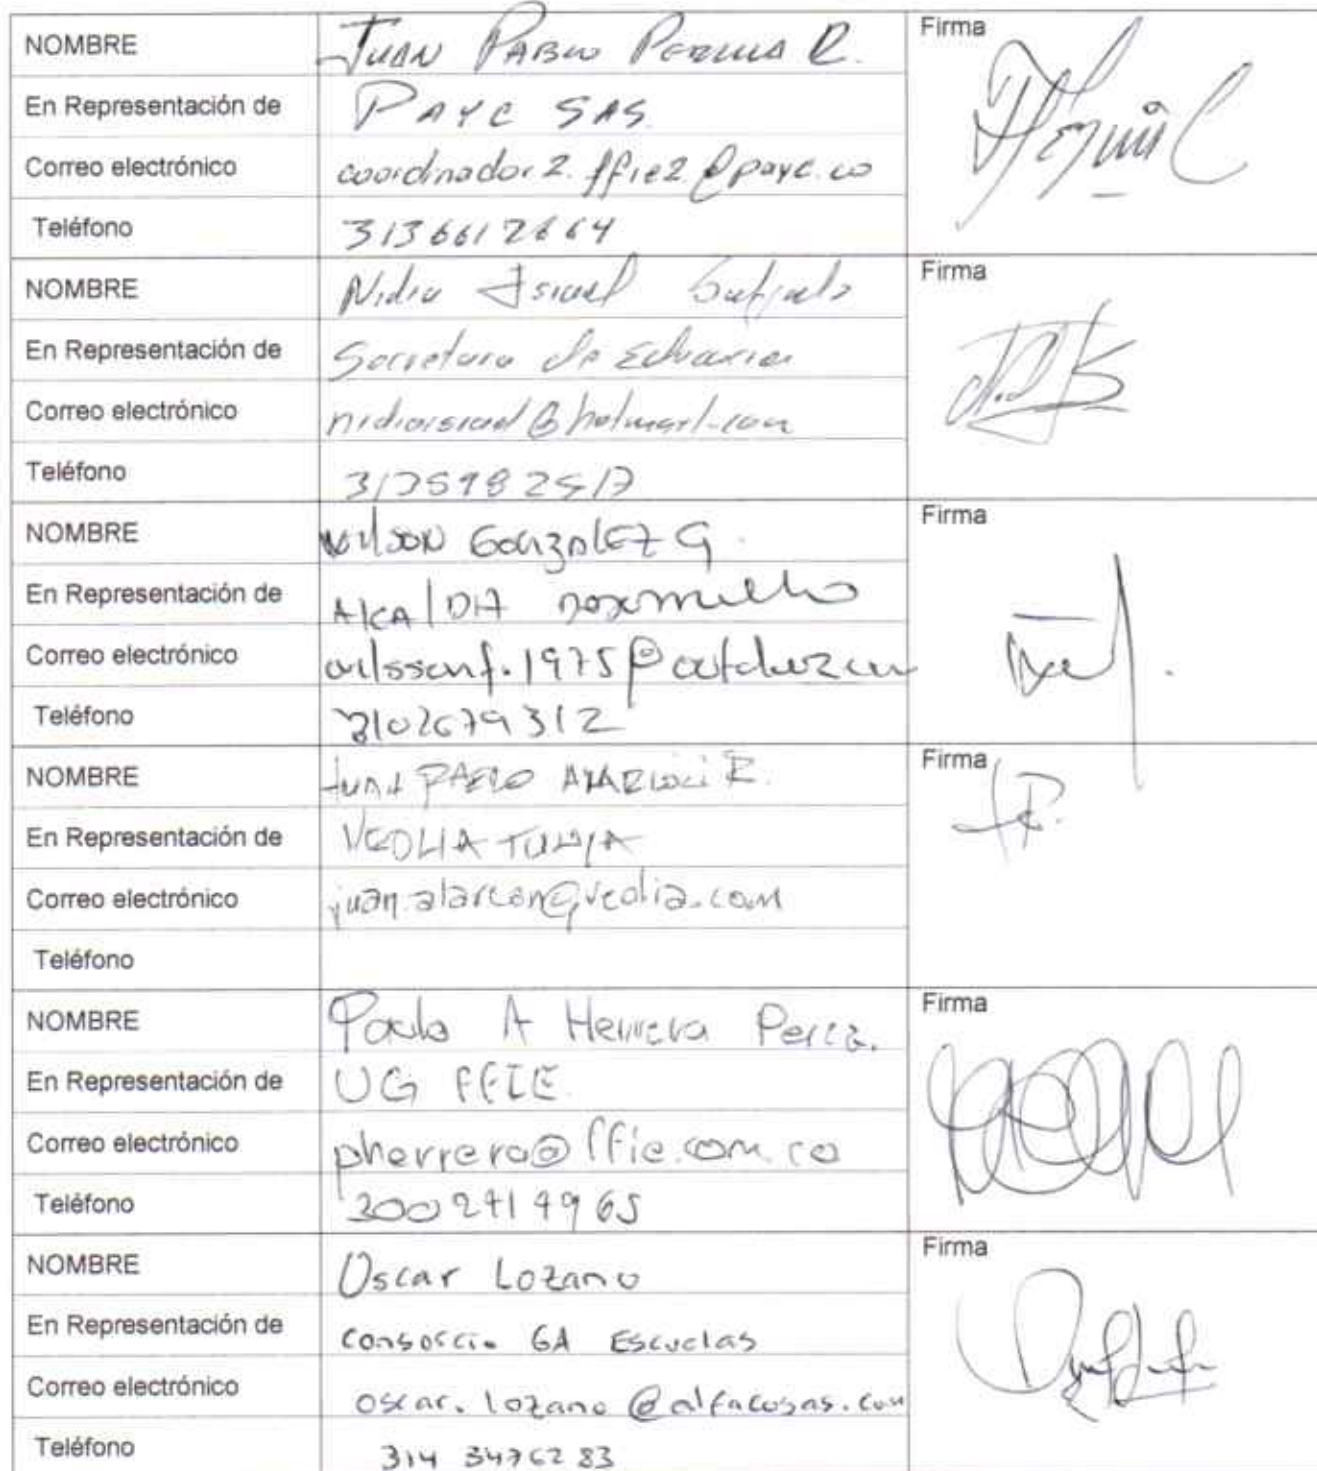 NOMBRE JUAN PABLO R. Firma
En Representación de PAYC SAS
Correo electrónico coordinador2.ffie2@payc.co
Teléfono 3136612664
NOMBRE Nidia Israel Firma
En Representación de Secretara de Educacion
Correo electrónico nidiaisrael@hotmail.com
Teléfono
NOMBRE Wilson GonzalEZ G. Firma
En Representación de AlcAlDIA
Correo electrónico
Teléfono 3102679312
NOMBRE Juan PABLO R. Firma
En Representación de VEOLIA TUNJA
Correo electrónico juan.alarcon@veolia.com
Teléfono
NOMBRE Paola A Herrera Perez. Firma
En Representación de UG FFIE
Correo electrónico pherrera@ffie.com.co
Teléfono
NOMBRE Oscar Lozano Firma
En Representación de Consorcio GA Escuelas
Correo electrónico oscar.lozano@alfacosas.com
Teléfono 314 3476283